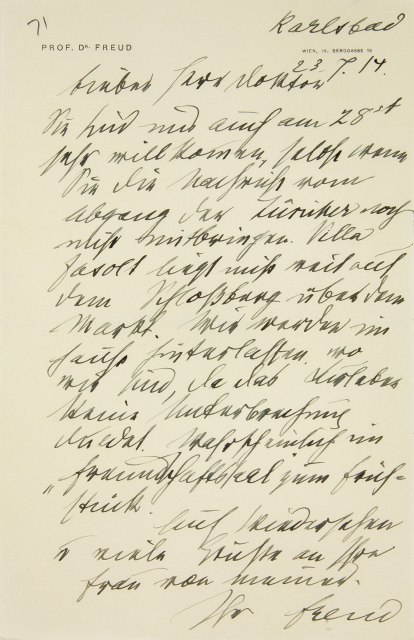 71
Karlsbad
PROF. DR. FREUD
WIEN, IX. BERGGASSE 19
23. 7. 14.
Lieber Herr Doktor
Sie sind uns auch am 28st
sehr willkommen, selbst wenn
Sie die Nachricht vom
Abgang der Züricher noch
nicht mitbringen. Villa
Fasolt liegt nicht weit auf
dem Schloßberg über dem
Markt. Wir werden im
Hause hinterlassen, wo
wir sind, da das Kurleben
keine Unterbrechung
duldet. Wahrscheinlich im
„Freundschaftssaal" zum Früh-
stück.
Auf Wiedersehen
u viele Grüße an Ihre
Frau von meiner.
Ihr Freud